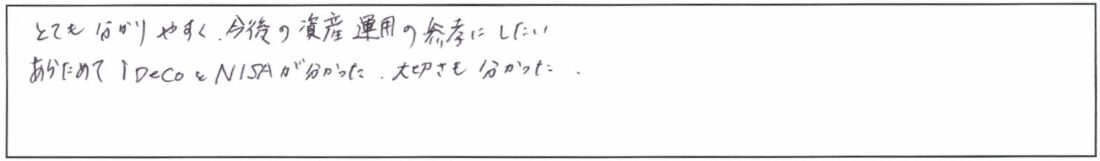 とても分かりやすく、今後の資産運用の参考にしたい
あらためてiDeCoとNISAが分かった、大切さも分かった、